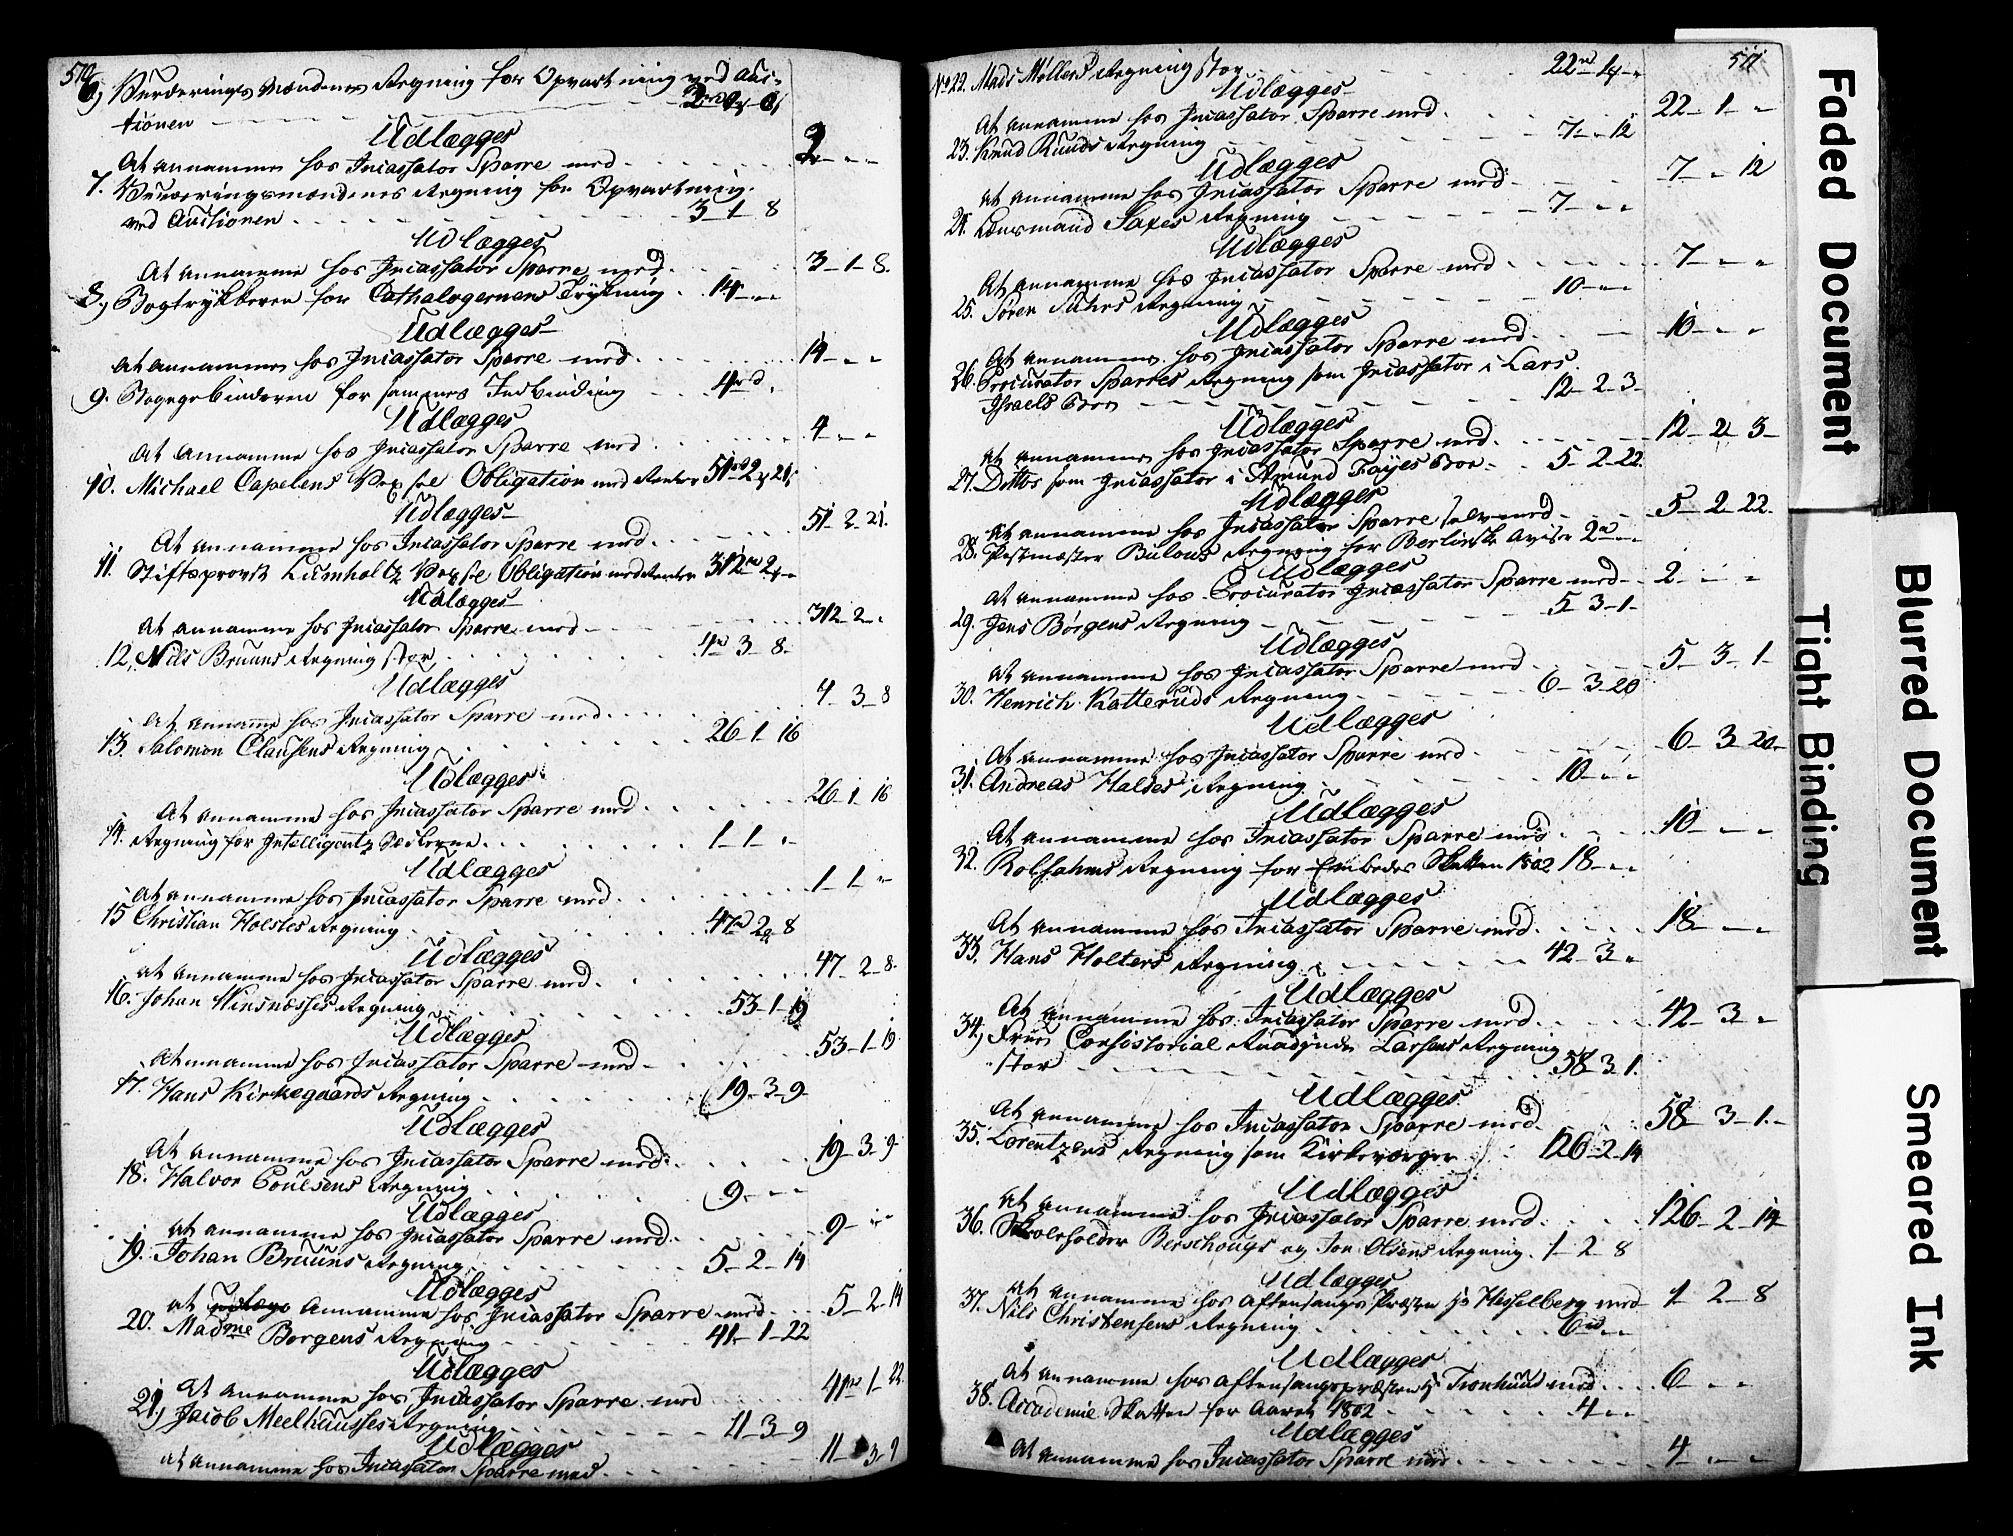 510
6, Vurderings Mændenes Regning for Opvartning ved Auc-
tionen
Udlægges
At annamme hos Incassator Sparre med 2
7. Vurderingsmændenes Regning for Opvartning
ved Auctionen 3-1-8
Udlægges
At annamme hos Incassator Sparre med 3-1-8.
8, Bogtrykkeren for Cathalogernes Trykning 14
Udlægges
At annamme hos Incassator Sparre med 14
9. Bogebinderen for sammes Indbinding 4rd
Udlægges
At annamme hos Incassator Sparre med 4
10. Michael Capelens Obligation med Renter 51rd 2 21
Udlægges
At annamme hos Incassator Sparre med 51-2-21.
11. Stiftsprovst Lumholtz Obligation med Renter 312rd 2
Udlægges
At annamme hos Incassator Sparre med 312-2-
12, Nils Bruuns Regning stor 4rd 3-8-
Udlægges
At annamme hos Incassator Sparre med 4-3-8
13. Salomon Clausens Regning 26-1-16
Udlægges
At annamme hos Incassator Sparre med 26-1-16
14. Regning for Intelligentz Sedlerne 1-1-
Udlægges
At annamme hos Incassator Sparre med 1-1-
15 Christian Holstes Regning 47rd 2 8
Udlægges
At annamme hos Incassator Sparre med 47-2-8.
16. Johan Winsnæsses Regning 53-1-19
Udlægges
At annamme hos Incassator Sparre med 53-1-19
17. Hans Kirkegaards Regning 19-3-9-
Udlægges
At annamme hos Incassator Sparre med 19-3-9-
18. Halvor Poulsens Regning 9
Udlægges
At annamme hos Incassator Sparre med 9
19. Johan Bruuns Regning 5-2-14
Udlægges
At annamme hos Incassator Sparre med 5-2-14
20. Madme Borgens Regning 41-1-22
Udlægges
At annamme hos Incassator Sparre med 41rd 1-22
21, Jacob Meelhausses Regning 11-3-9
Udlægges
At annamme hos Incassator Sparre med 11-3-9
No 22. Mads Møllers Regning stor 511
Udlægges
At annamme hos Incassator Sparre med 22-1-
23. Knud Ruuds Regning 7-12
Udlægges
At annamme hos Incassator Sparre med 7-12
24. Lensmand Saxes Regning 7
Udlægges
At annamme hos Incassator Sparre med 7
25. Søren Suhrs Regning 10
Udlægges
At annamme hos Incassator Sparre med 10
26. Procurator Sparres Regning som Incassator i Lars
Israels Boe 12-2-3-
Udlægges
At annamme hos Incassator Sparre med 12-2-3-
27. Dittos som Incassator i Amund Fayes Boe 5-2-22.
Udlægges
At annamme hos Incassator Sparre selv med 5-2-22.
28. Postmæster Bulows Regning for Berlinske Aviser 2rd
Udlægges
At annamme hos Procurator Incassator Sparre med 2
29. Jens Børgens Regning 5-3-1-
Udlægges
At annamme hos Incassator Sparre med 5-3-1-
30. Henrich Katteruds Regning 6-3-20
Udlægges
At annamme hos Incassator Sparre med 6-3-20-
31. Andreas Haldes Regning 10
Udlægges
At annamme hos Incassator Sparre med 10
32. Rolfsahns Regning for Embeds Skatten 1802 18
Udlægges
At annamme hos Incassator Sparre med 18
33. Hans Holters Regning 42-3-
Udlægges
At annamme hos Incassator Sparre med 42-3-
34, Frue Consistorial Raadinde Larsens Regning
stor 58-3-1.
Udlægges
At annamme hos Incassator Sparre med 58-3-1.-
35. Lorentzens Regning som Kirkeværger 126-2-14
Udlægges
At annamme hos Incassator Sparre med 126-2-14
36. Skoleholder Berschougs og Jon Olsens Regning 1-2-8
Udlægges
At annamme hos Aftensangs Præsten Hr Hesselberg med 1-2-8
37. Nils Christensens Regning 6rd
Udlægges
At annamme hos Aftensangspræsten Hr Tronhuus med 6
38. Accademie Skatten for Aaret 1802 4
Udlægges
At annamme hos Incassator Sparre med 4
Faded Document
Blurred Document
Tight Binding
Smeared Ink